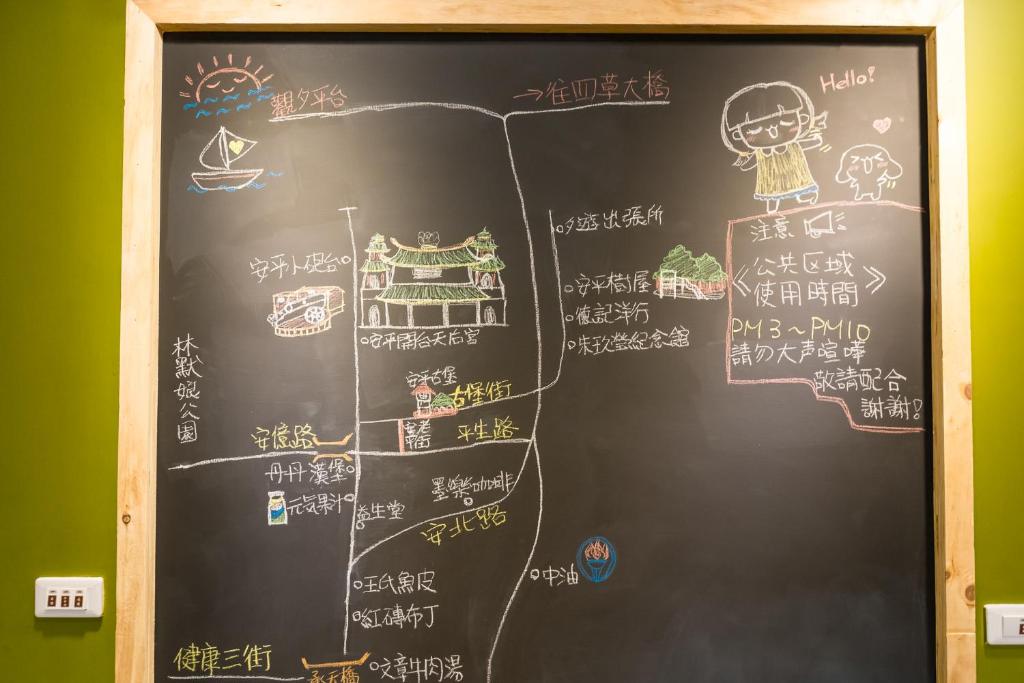 觀夕平台
→往四草大橋
Hello!
夕遊出張所
注意
安平小砲台
《公共区域
使用時間》
安平樹屋
德記洋行
朱玖瑩紀念館
PM3~PM10
請勿大声喧嘩
敬請配合
謝謝!
安平開台天后宮
林默娘公園
安平古堡
古堡街
安平老街
平生路
安億路
丹丹漢堡
元気果汁
益生堂
墨樂咖啡
安北路
中油
王氏魚皮
紅磚布丁
健康三街
承天橋
文章牛肉湯